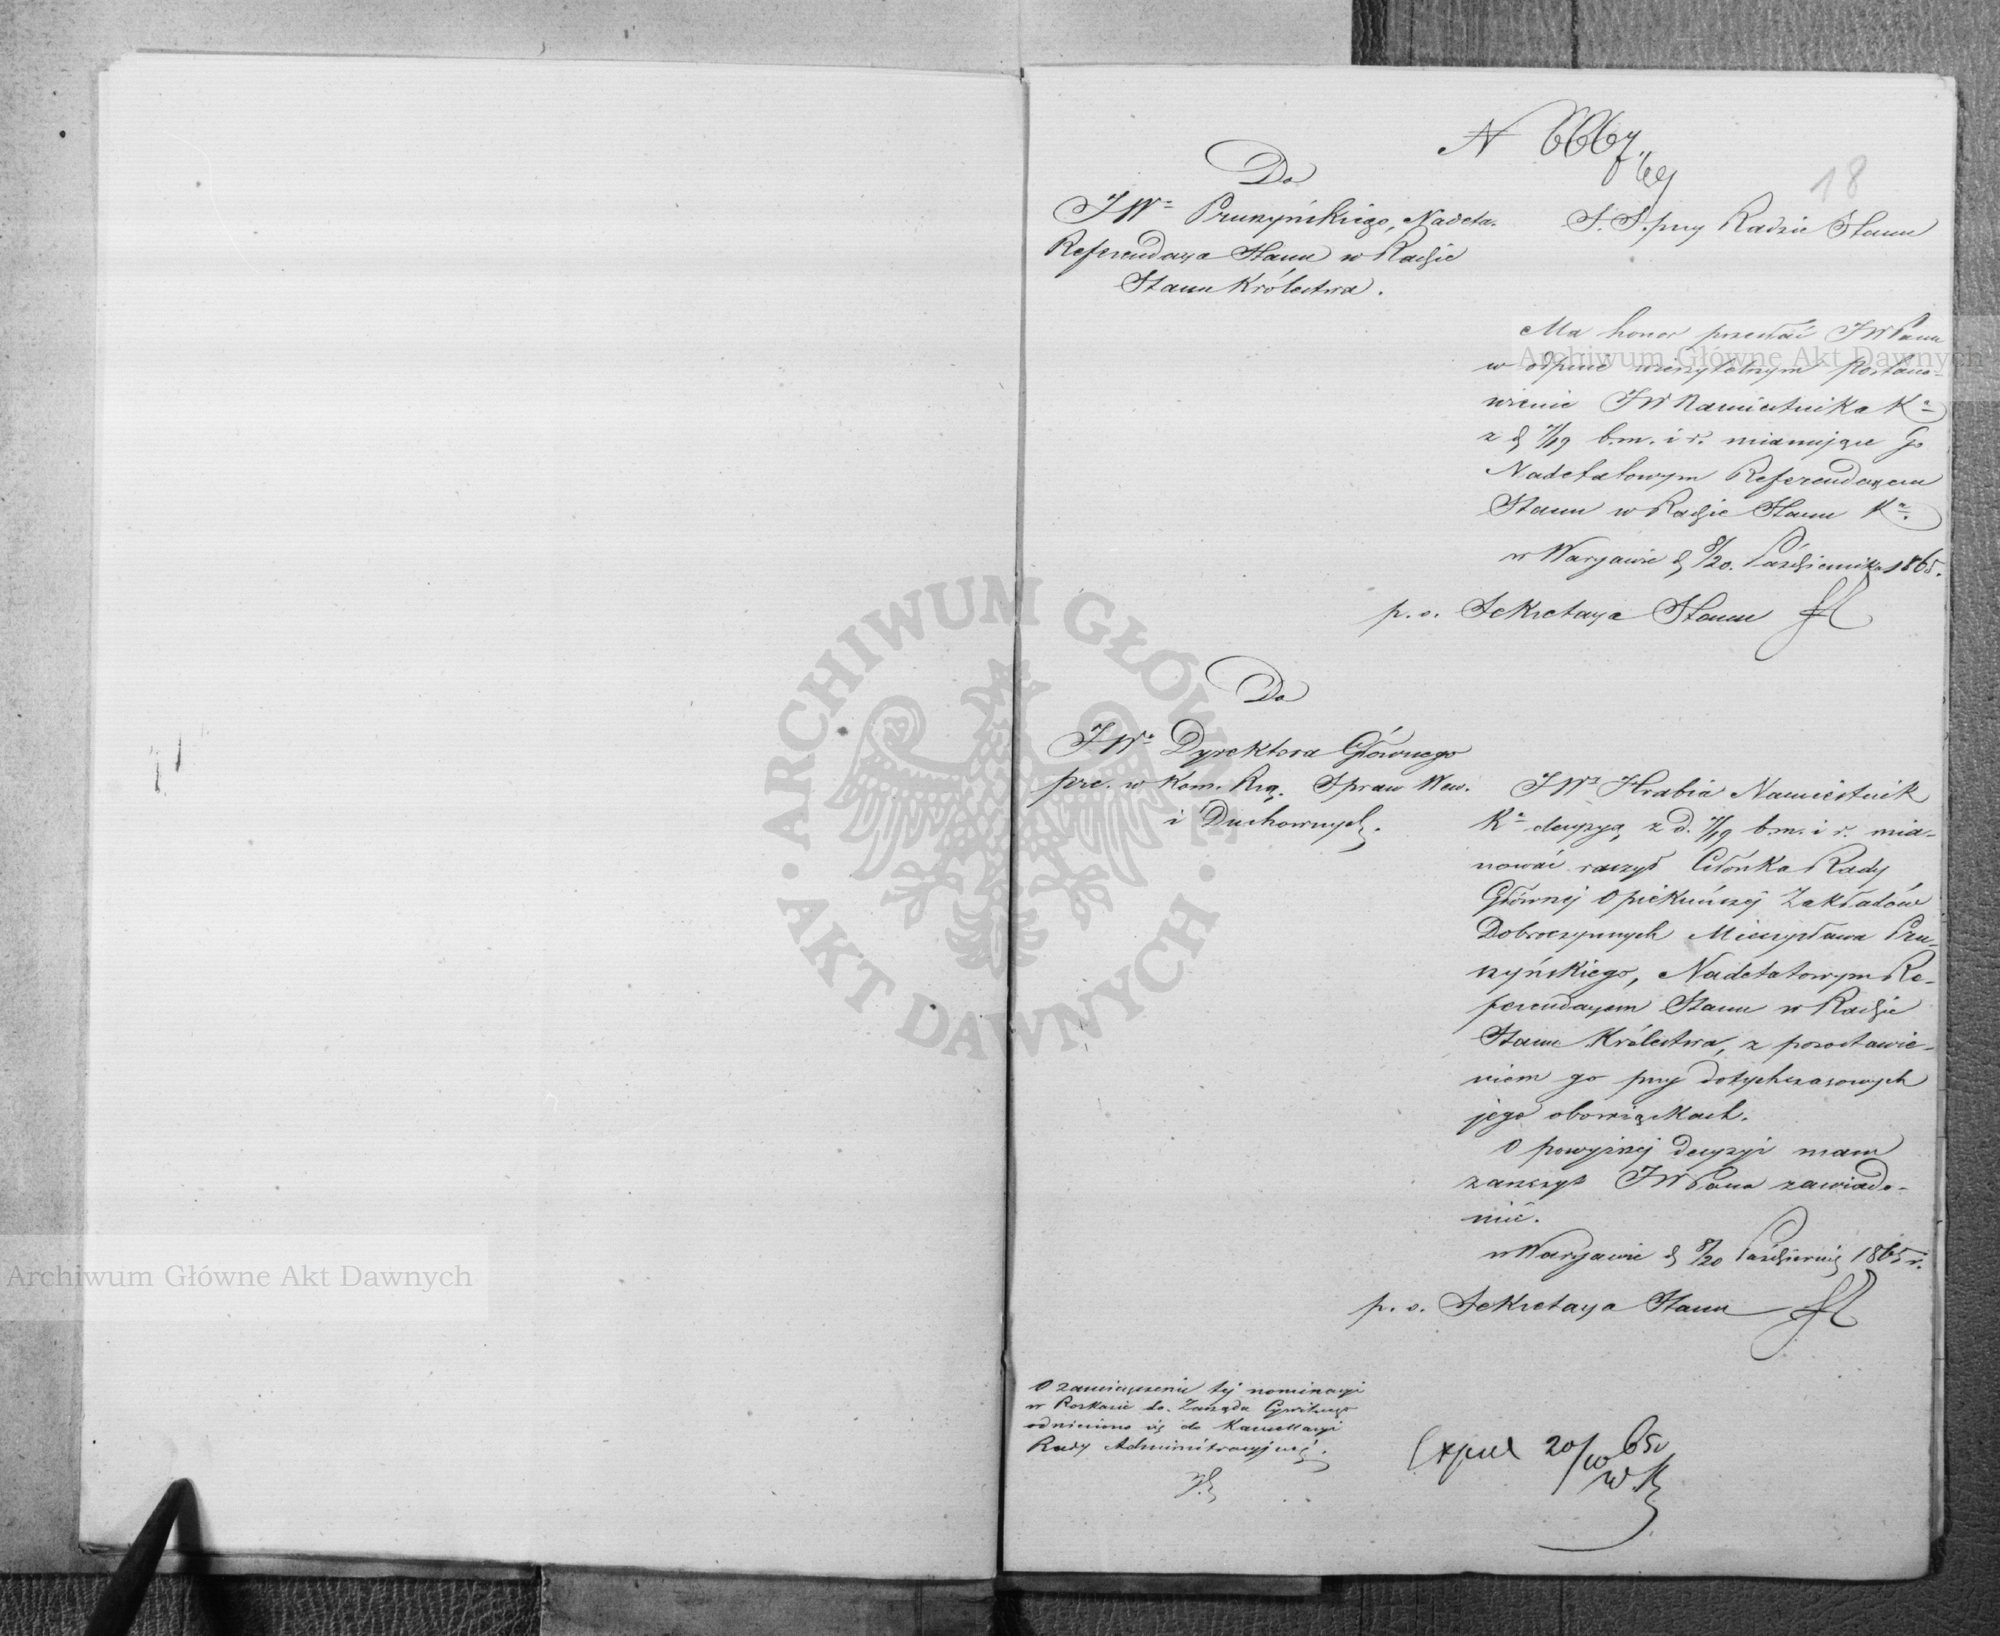 18
Do
JWo Pruszyńskiego, Nadeta.
Referendarza Stanu w Radzie
Stanu Królestwa.
S. S. przy Radzie Stanu
Ma honor przesłać JWPanu
w odpisie wierzytelnym Postano-
wienie JW Namiestnika Ka
z d 7/19 b.m. i r. mianujące Go
Nadetatowym Referendarzem
Stanu w Radzie Stanu Ka.
w Warszawie d 8/20. Października 1865.
p. o. Sekretarza Stanu
Do
JWo Dyrektora Głównego
prez. w Kom. Rzą. Spraw Wew.
i Duchownych.
JWy Hrabia Namiestnik
Ka decyzyą z d. 7/19 b.m. i r. mia-
nować raczył Członka Rady
Głównej Opiekuńczej Zakładów
Dobroczynnych Mieczysława Pru-
szyńskiego, Nadetatowym Re-
ferendarzem Stanu w Radzie
Stanu Królestwa, z pozostawie-
niem go przy dotychczasowych
jego obowiązkach.
O powyższej decyzyi mam
zaszczyt JWPana zawiado-
mić.
w Warszawie d 8/20 Październik 1865 r.
p. o. Sekretarza Stanu
O zamieszczenie tej nominacyi
w Rozkazie do Zarządu Cywilnego
odniesiono się do Kancellaryi
Rady Administracyjnej.
Exped 20/10 65
Archiwum Główne Akt Dawnych
Archiwum Główne Akt Dawnych
ARCHIWUM GŁÓWNE · AKT DAWNYCH ·